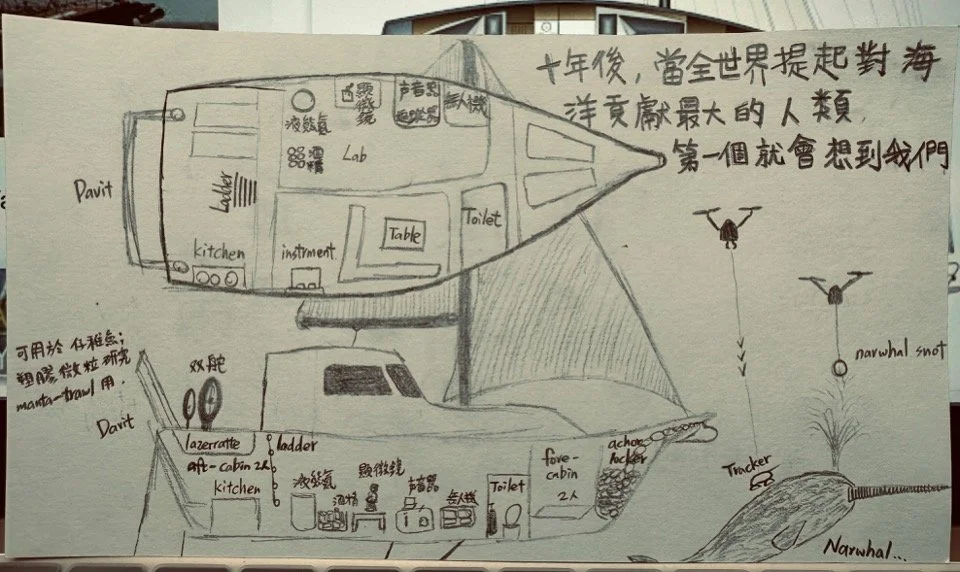 十年後，當全世界提起對海
洋貢獻最大的人類，
第一個就會想到我們
液態氮
顯
微
鏡
声音器
無人機
酒
精
Lab
Davit
Ladder
kitchen
instrment
Table
Toilet
可用於 仔稚魚；
塑膠微粒研究
manta-trawl 用．
双舵
Davit
lazerratte
ladder
aft-cabin 2人
kitchen
液態氮
酒精
顯微鏡
声音器
無人機
Toilet
fore-
cabin
2人
achor
locker
narwhal snot
Tracker
Narwhal...